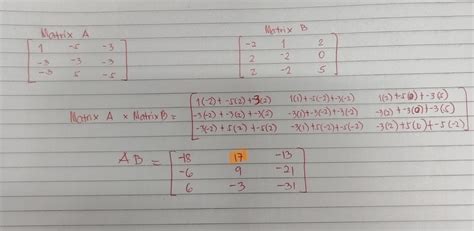 Matrix A Matrix B
1 -5 -3 -2 1 2
-3 -3 -3 2 -2 0
-3 5 -5 2 -2 5
1(-2) + -5(2) + -3(2) 1(1) + -5(-2) + -3(-2) 1(2) + -5(0) + -3(5)
Matrix A × Matrix B = -3(-2) + -3(2) + -3(2) -3(1) + -3(-2) + -3(-2) -3(2) + -3(0) + -3(5)
-3(-2) + 5(2) + -5(2) -3(1) + 5(-2) + -5(-2) -3(2) + 5(0) + -5(-2)
-18 17 -13
AB = -6 9 -21
6 -3 -31